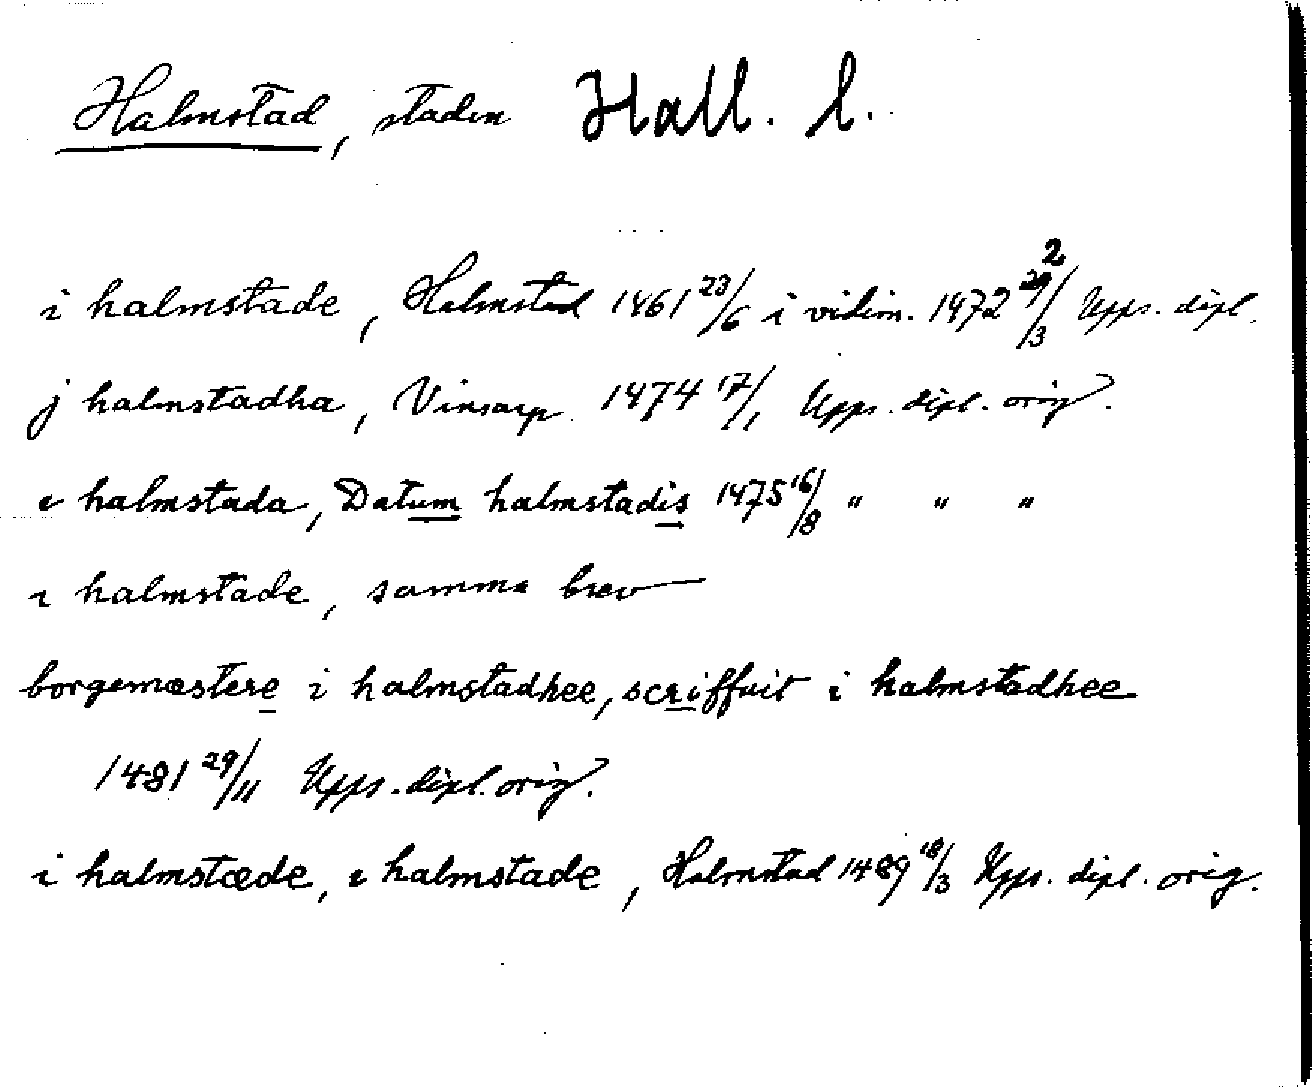 Halmstad, staden Hall. l.
i halmstade, Halmstad 1461 23/6 i vidim. 1472 /3 Upps. dipl.
j halmstadha, Vinsarp. 1474 17/1 Upps. dipl. orig.
i halmstada, Datum halmstadis 1475 16/8 " " "
i halmstade, samma brev
borgemæstere i halmstadhee, scriffuit i halmstadhee
1481 29/11 Upps. dipl. orig.
i halmstæde, i halmstade, Halmstad 1489 /3 Upps. dipl. orig.